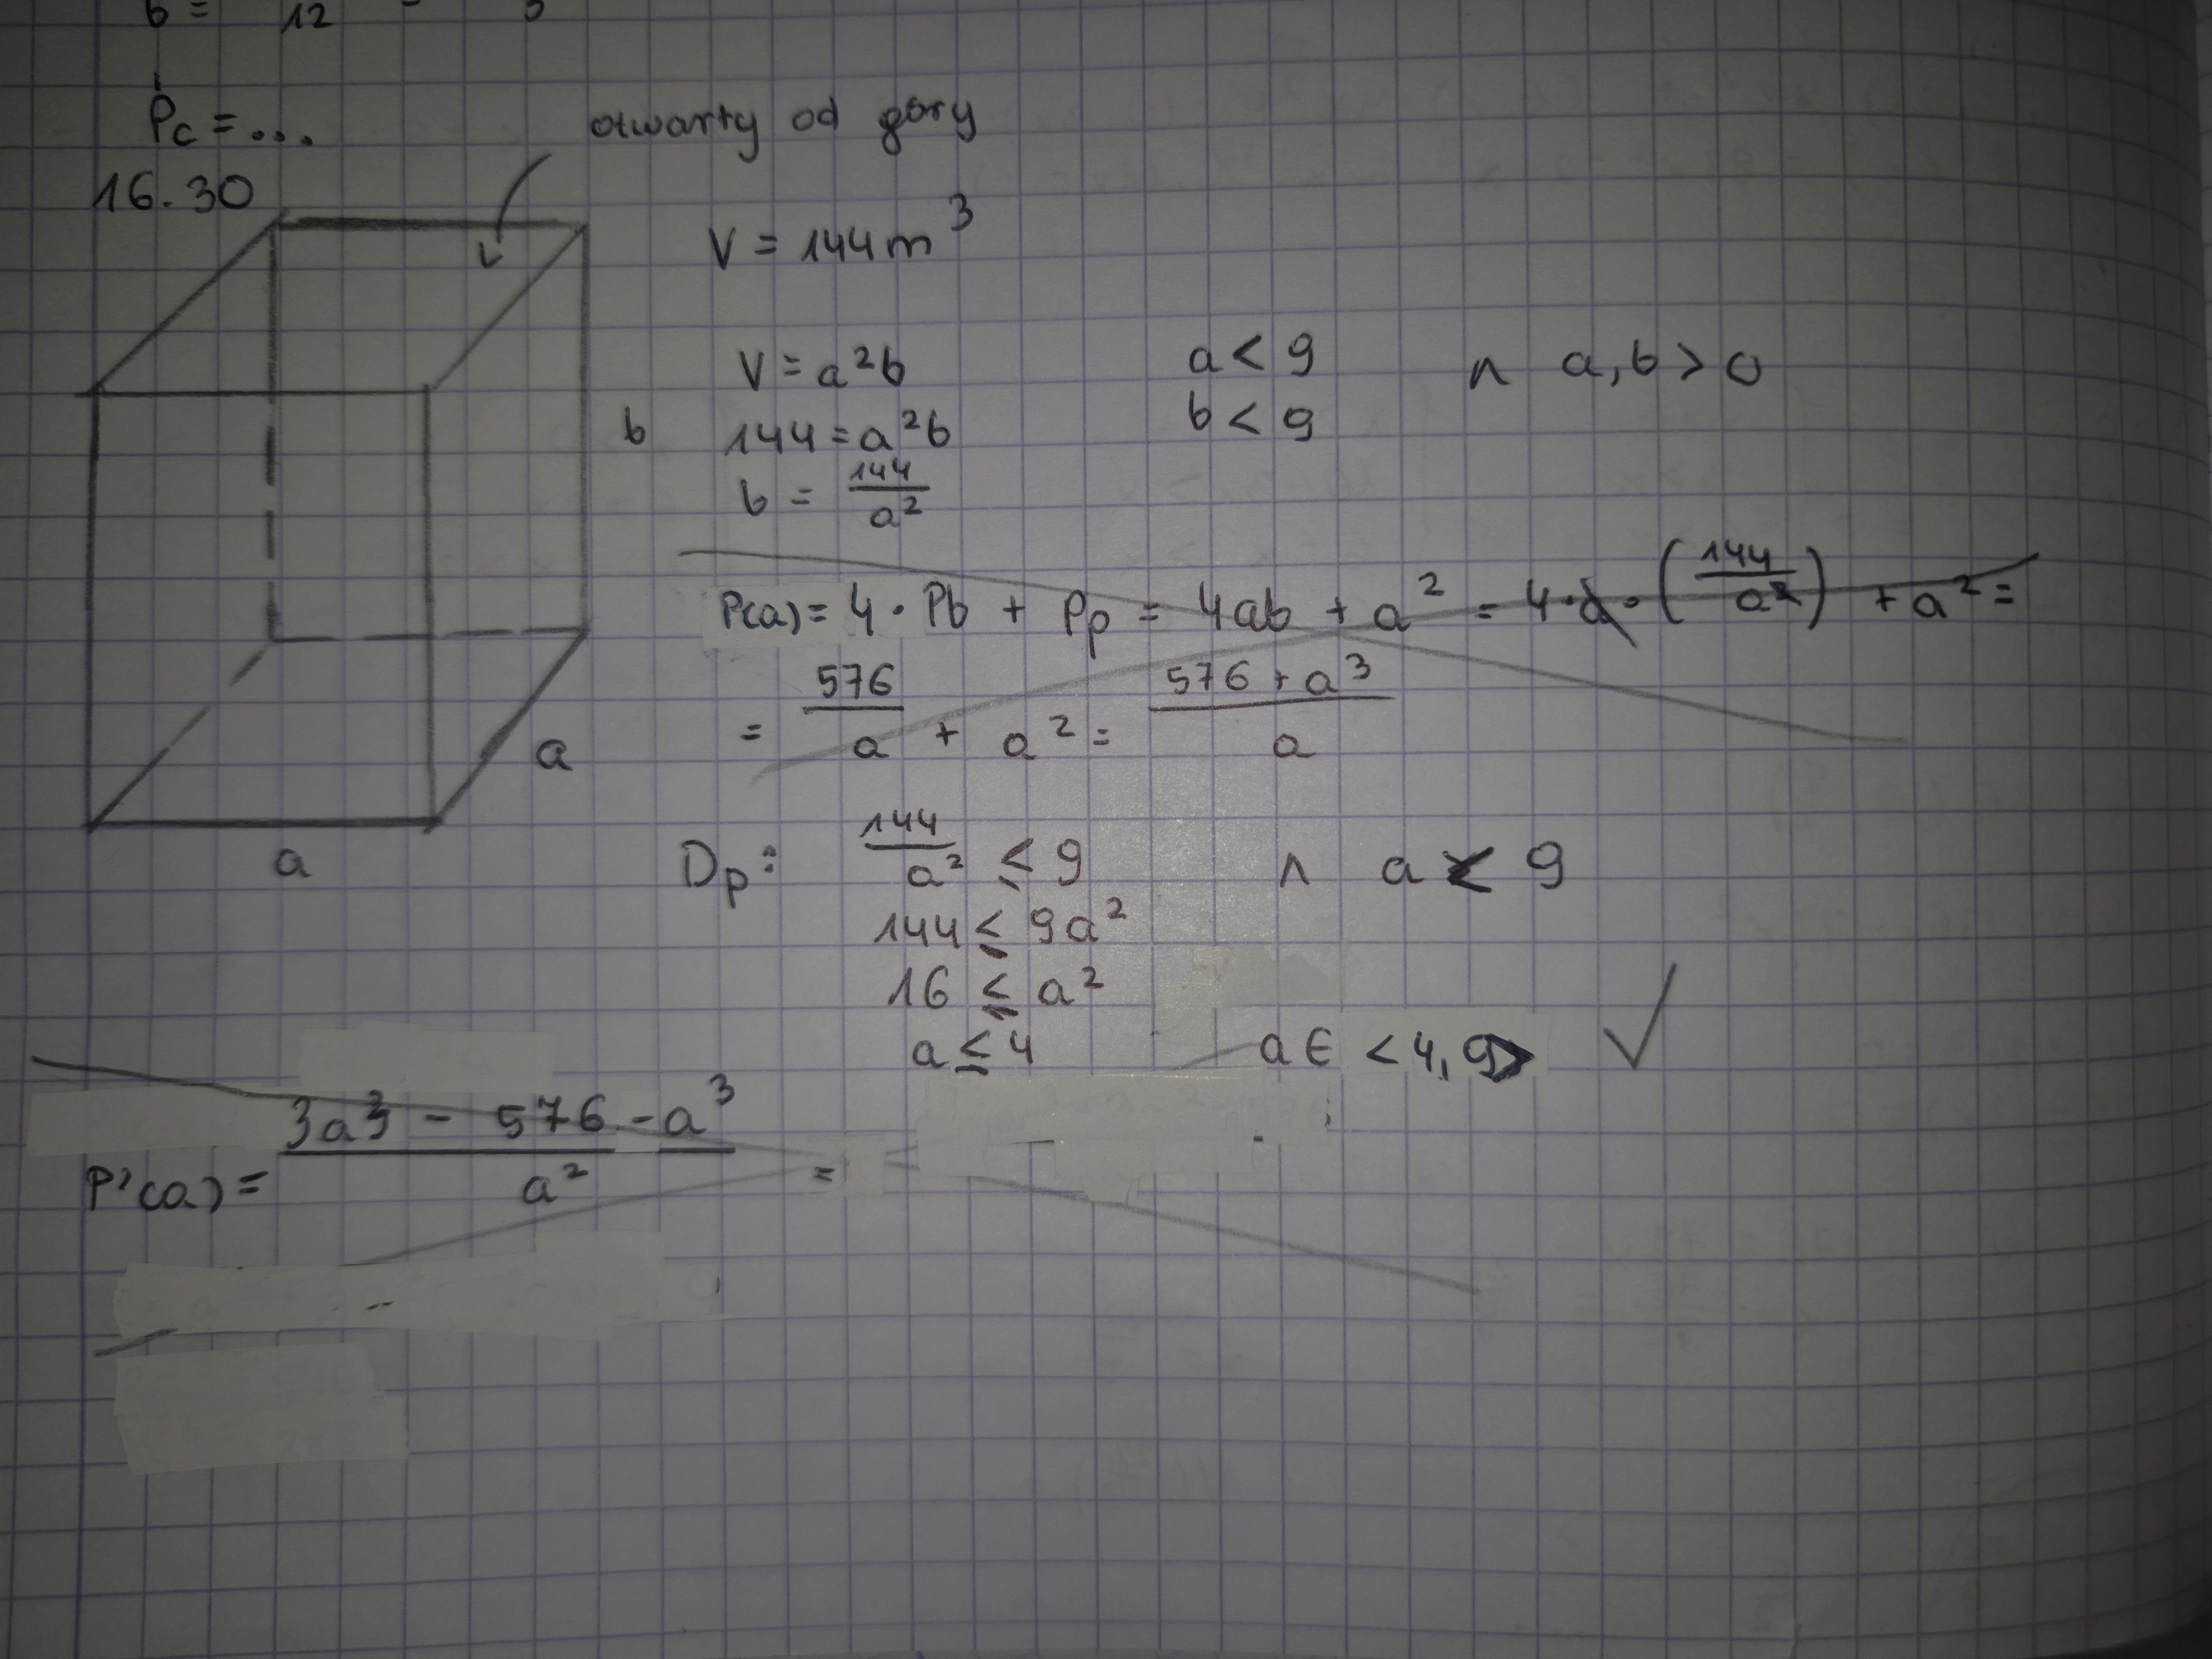 b = 12 - 3
Pc = ...
otwarty od góry
16.30
V = 144 m³
V = a²b
a < 9 ∧ a, b > 0
b
144 = a²b
b < 9
b = 144/a²
P(a) = 4 · Pb + Pp = 4ab + a² = 4 · a · (144/a²) + a² =
= 576/a + a² = (576 + a³)/a
a
a
Dp: 144/a² ≤ 9 ∧ a < 9
144 ≤ 9a²
16 ≤ a²
a ≤ 4 a ∈ <4, 9>
P'(a) = (3a³ - 576 - a³)/a² =